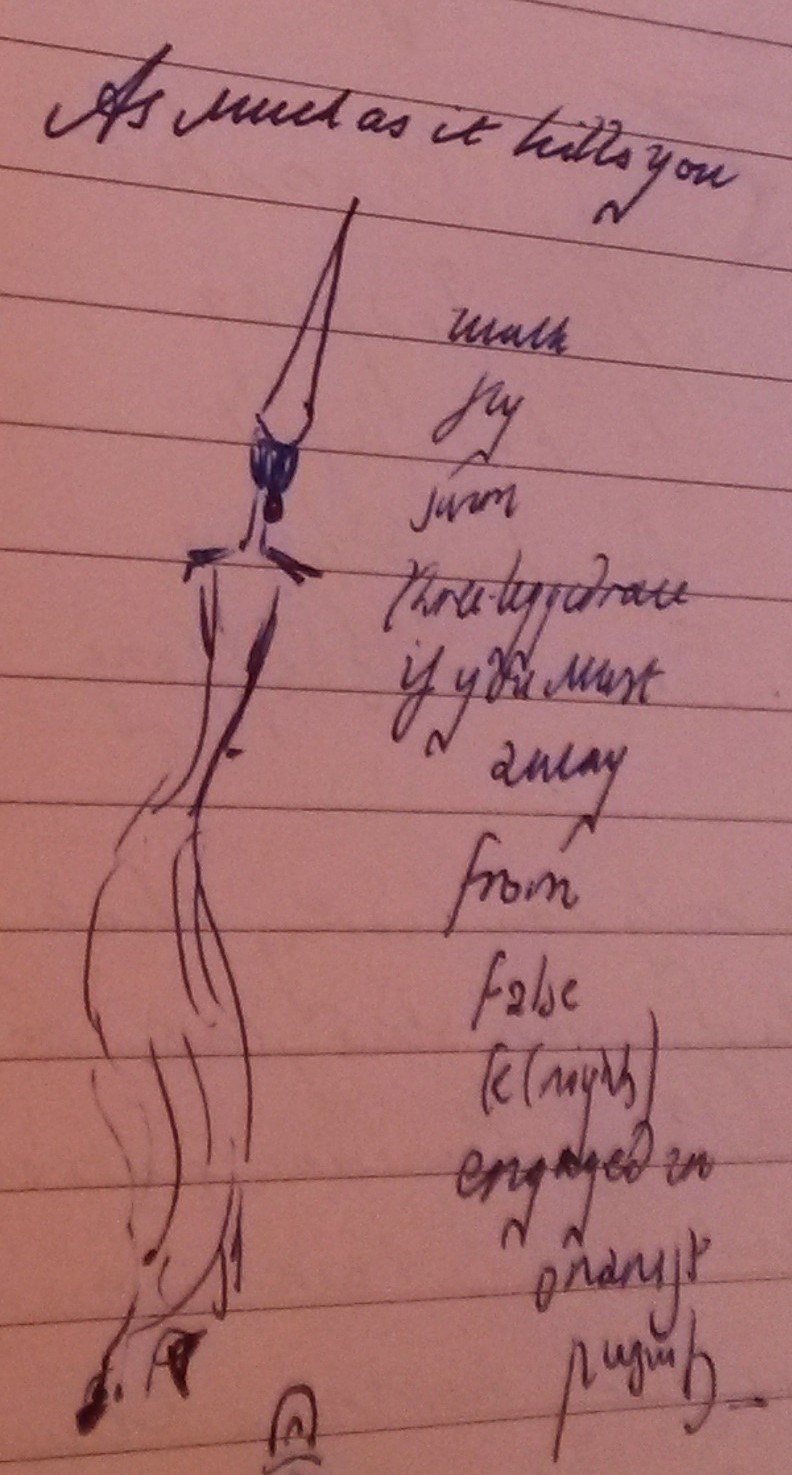 As much as it kills you
walk
fly
swim
three-legged race
if you must
away
from
false
k(nights)
engaged in
onanist